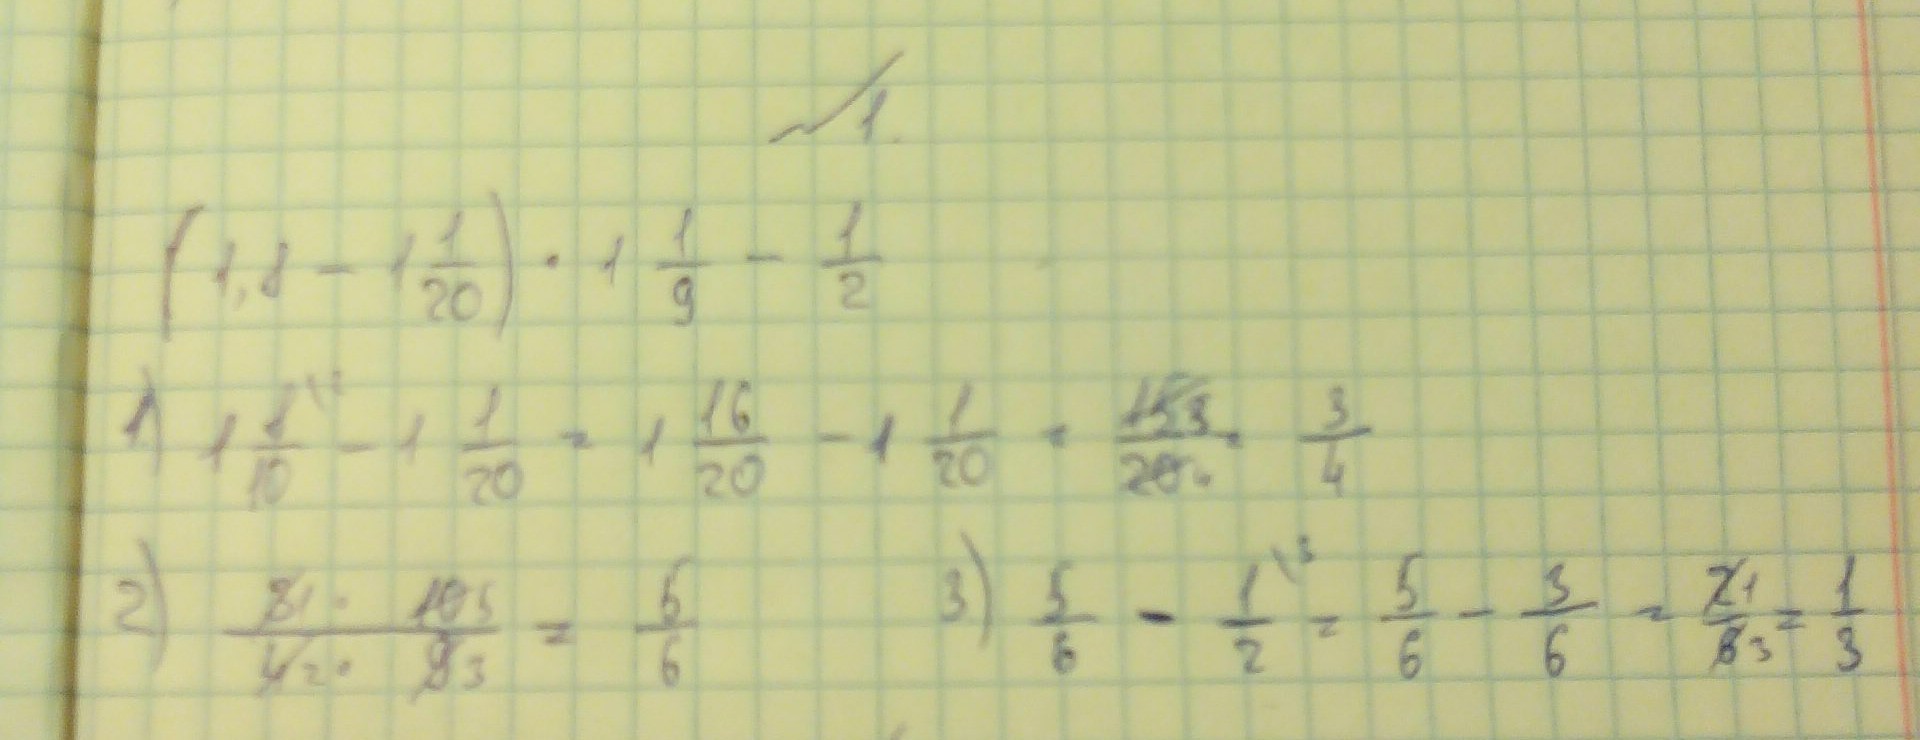 №1.
(1,8 - 1 1/20) · 1 1/9 - 1/2
1) 1 8/10\2 - 1 1/20 = 1 16/20 - 1 1/20 = 15 3/20 4 = 3/4
2) 3 1 · 10 5/4 2 · 9 3 = 5/6 3) 5/6 - 1/2\3 = 5/6 - 3/6 = 2 1/6 3 = 1/3